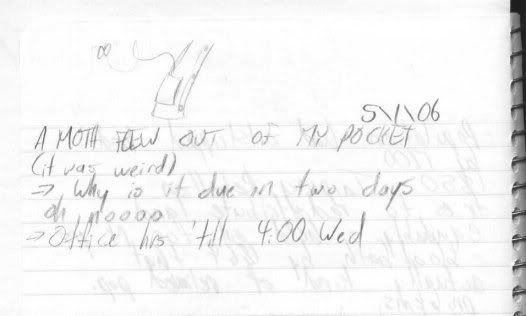 5\1\06
A MOTH FLEW OUT OF MY POCKET
(it was weird)
→ Why is it due in two days
oh noooo
→ Office hrs 'till 4:00 Wed